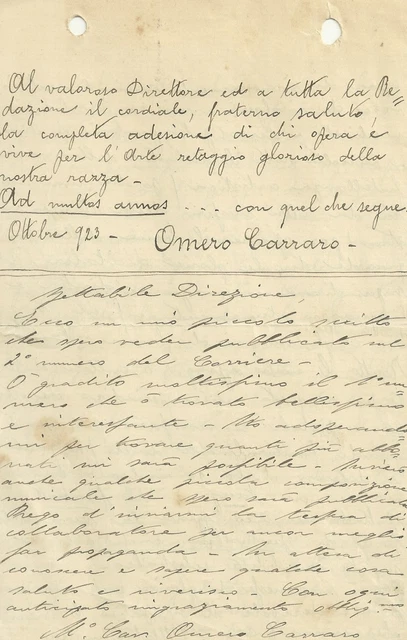 Al valoroso Direttore ed a tutta la Re=
dazione il cordiale, fraterno saluto,
la completa adesione di chi opera e
vive per l'Arte retaggio glorioso della
nostra razza -
Ad multos annos .... con quel che segue
Ottobre 923 - Omero Carraro -
Spettabile Direzione,
Ecco un mio piccolo scritto
che spero veder pubblicato sul
2° numero del Corriere -
Ò gradito moltissimo il 1° nu=
mero che ò trovato bellissimo
e interessante -
mi per trovare quanti più abbo=
nati mi sarà possibile -
anche qualche piccola composizione
musicale che spero sarà pubblicata
Prego d'inviarmi la tessera di
collaboratore per ancor meglio
far propaganda - In attesa di
conoscere e sapere qualche cosa
saluto e riverisco - Con ogni
anticipato ringraziamento
M° Cav. Omero Carraro